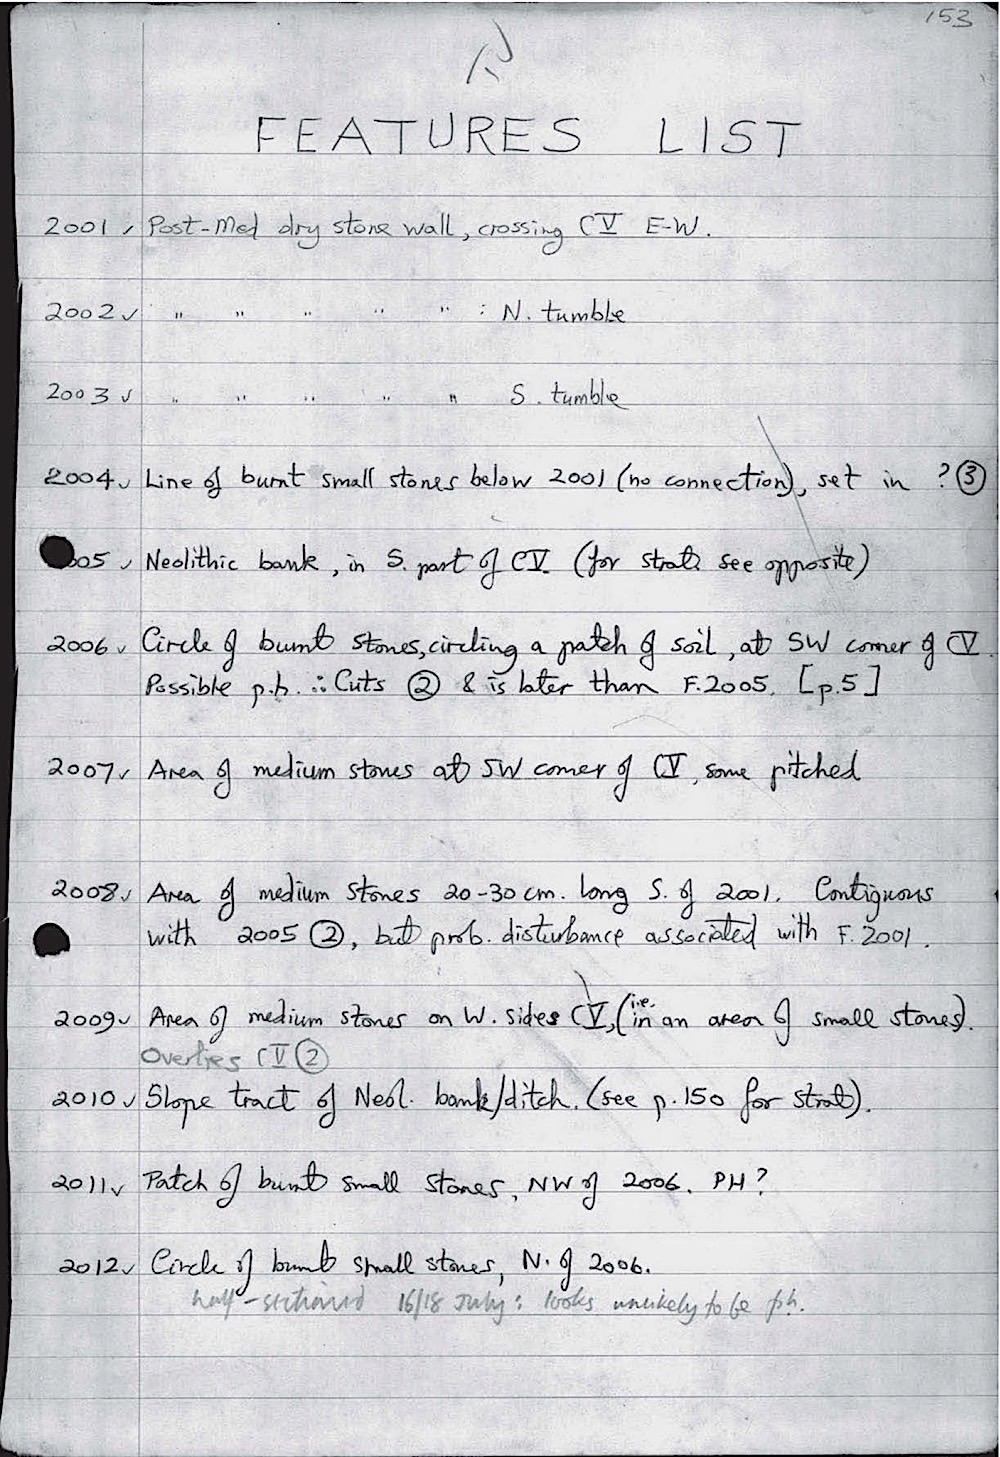 153
R
FEATURES LIST
2001 ✓ Post-Med dry stone wall, crossing CV E-W.
2002 ✓ " " " " " : N. tumble
2003 ✓ " " " " " S. tumble
2004 ✓ Line of burnt small stones below 2001 (no connection), set in ? ③
05 ✓ Neolithic bank, in S. part of CV (for strat. see opposite)
2006 ✓ Circle of burnt stones, circling a patch of soil, at SW corner of CV.
Possible p.h. ∴ Cuts ② & is later than F.2005. [p.5]
2007 ✓ Area of medium stones at SW corner of CV, some pitched
2008 ✓ Area of medium stones 20-30 cm. long S. of 2001. Contiguous
with 2005 ②, but prob. disturbance associated with F.2001.
2009 ✓ Area of medium stones on W. sides CV, (i.e. in an area of small stones).
Overlies CV ②
2010 ✓ Slope tract of Neol. bank/ditch. (see p.150 for strat).
2011 ✓ Patch of burnt small stones, NW of 2006. PH?
2012 ✓ Circle of burnt small stones, N. of 2006.
half-sectioned 16/18 July: looks unlikely to be ph.